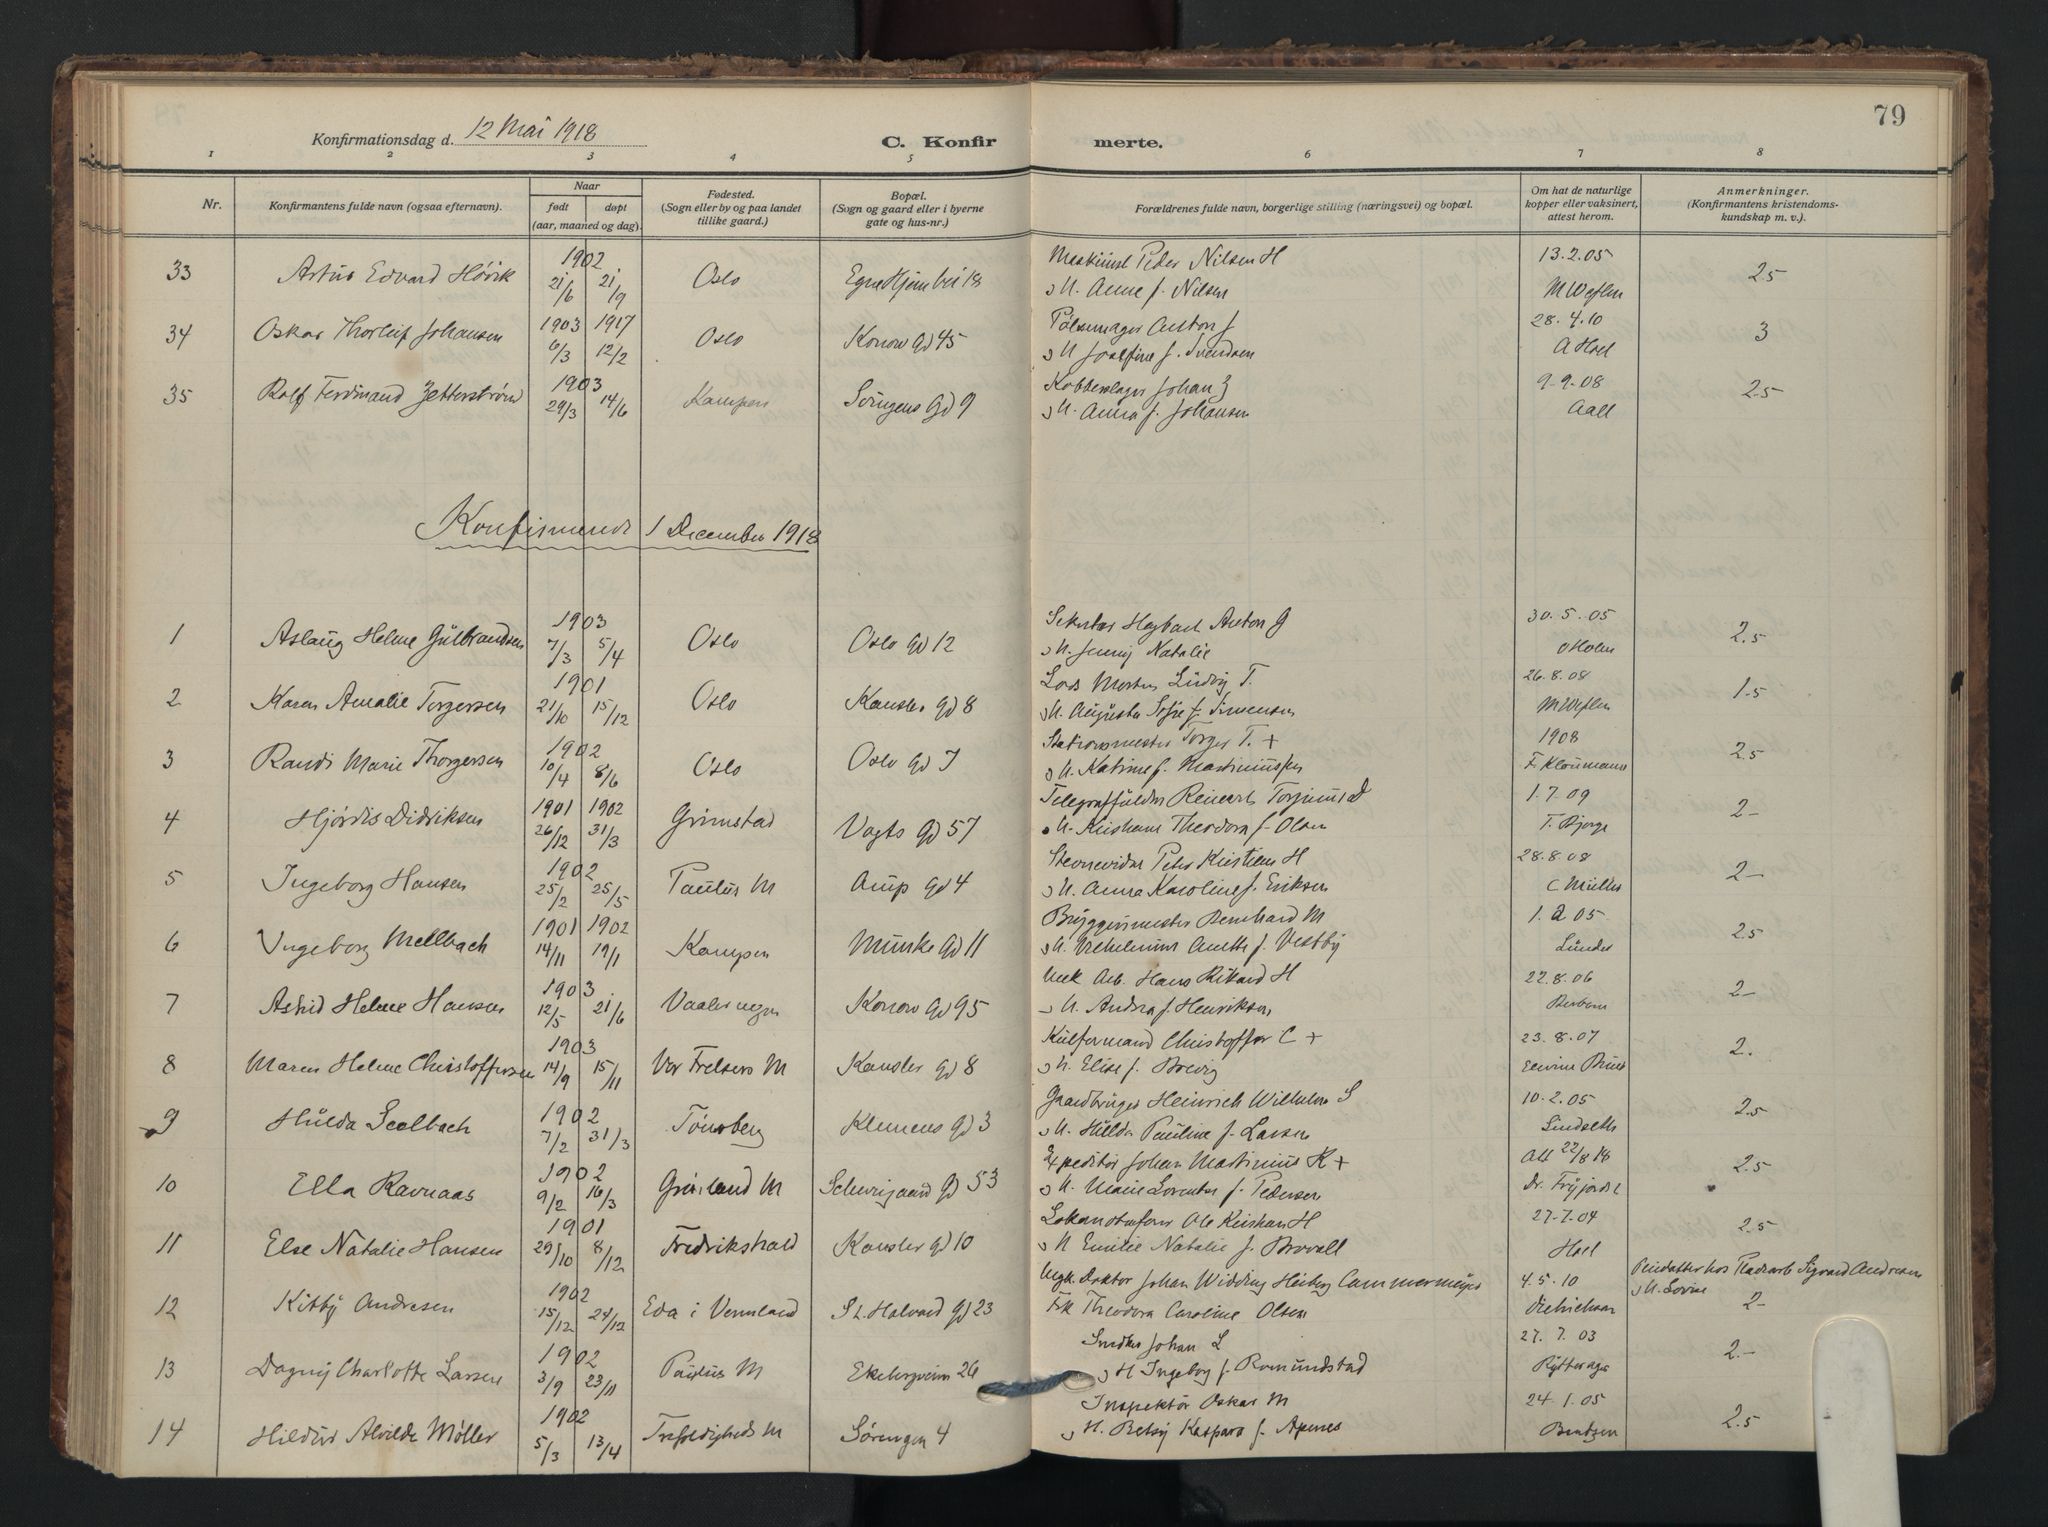 79
Konfirmationsdag d. 12 Mai 1918
C. Konfirmerte.
1 2 3 4 5 6 7 8
Nr. Konfirmantens fulde navn (ogsaa efternavn). Naar født døpt (aar, maaned og dag). Fødested. (Sogn eller by og paa landet tillike gaard.) Bopæl. (Sogn og gaard eller i byerne gate og hus-nr.) Forældrenes fulde navn, borgerlige stilling (næringsvei) og bopæl. Om hat de naturlige kopper eller vaksinert, attest herom. Anmerkninger. (Konfirmantens kristendomskundskap m. v.)
33 Artur Edvard Høvik 1902 21/6 21/9 Oslo Egne Hjem vei 18 Maskinist Peder Nilsen H 13.2.05 2.5
o H. Anne f. Nilsen M Weflen
34 Oskar Thorleif Johansen 1903 6/3 1917 12/2 Oslo Konow Gd 45 Pølsemager Anton J 28.4.10 3
o H Josefine f. Svendsen A Hoel
35 Rolf Ferdinand Zetterstrøm 1903 29/3 14/6 Kampen Sørengens Gd 9 Kobberslager Johan Z 9-9-08 2.5
o H. Anna f. Johansen Aall
Konfirmerede 1 December 1918
1 Aslaug Helene Gulbrandsen 1903 7/3 5/4 Oslo Oslo Gd 12 Anton G 30.5.05 2.5
o H. Jenny Natalie O Holm
2 Karen Amalie Torgersen 1901 21/10 15/12 Oslo Kansler Gd 8 Lods Morten Ludvig T. 26.8.08 1.5
o H. Augusta Sofie f. Simensen M Weflen
3 Randi Marie Thorgersen 1902 10/4 8/6 Oslo Oslo Gd 7 Stationsmester Torger T. + 1908 2.5
o H. Katrine f. Martiniussen F. Kloumann
4 Hjørdis Didriksen 1901 26/12 1902 31/3 Grimstad Vogts Gd 57 Reinert Torjinus D 1.7.09 2-
o H. Kristiane Theodora f. Olsen T. Bjorge
5 Ingeborg Hansen 1902 25/2 25/5 Paulus M Arup Gd 4 Peter Kristian H 28.8.08 2-
o H. Anna Karoline f. Eriksen C Müller
6 Ingeborg Mellbach 1901 14/11 1902 19/1 Kampen Munke Gd 11 Bryggerimester Bernhard M 1.2.05 2.5
o H. Vilhelmine Anette f. Vestby Lunder
7 Astrid Helene Hansen 1903 12/5 21/6 Vaalerengen Konow Gd 95 Mek Arb. Hans Rikard H 22.8.06 2-
o H. Andrea f. Henriksen
8 Maren Helene Christoffersen 1903 14/9 15/11 Vor Frelsers M Kansler Gd 8 Kulformand Christoffer C + 23.8.07 2.
o H. Elise f. Brevig
9 Hulda Seolbach 1902 7/2 31/3 Tønsberg Klemens Gd 3 Gaardbruger Heinrich Wilhelm S 10.2.05 2.5
o H. Hulda Pauline f. Larsen Lindseth
10 Ella Ravnaas 1902 9/2 16/3 Grønland M Schweigaard Gd 53 Expeditør Johan Martinius R + Att 22/8 18 2.5
o H. Marie Lorentse f. Pedersen
11 Else Natalie Hansen 1901 29/10 8/12 Fredrikshald Kansler Gd 10 Lokomotivfører Ole Kristian H 27-7-04 2.5
o H Emilie Natalie f. Brovall Hoel
12 Kitty Andresen 1902 15/12 24/12 Eda i Vermland St. Halvard Gd 23 Ungk. Doktor Johan Widding Heiberg Cammermeyer 4.5.10 Pleiedatter hos Pladearb Sigvard Andresen
Frk Theodora Caroline Olsen Dietrichson o H. Lovise 2-
13 Dagny Charlotte Larsen 1902 3/9 23/11 Paulus M Ekebergveien 26 Snedker Johan L 27.7.03 2.-
o H Ingeborg f. Romundstad Rytterager
14 Hildur Alvilde Møller 1902 5/3 13/4 Trefoldigheds M Sørengen 4 Inspektør Oskar M 24.1.05 2.5
o H. Betsy Kaspara f. Apenes Bentzen